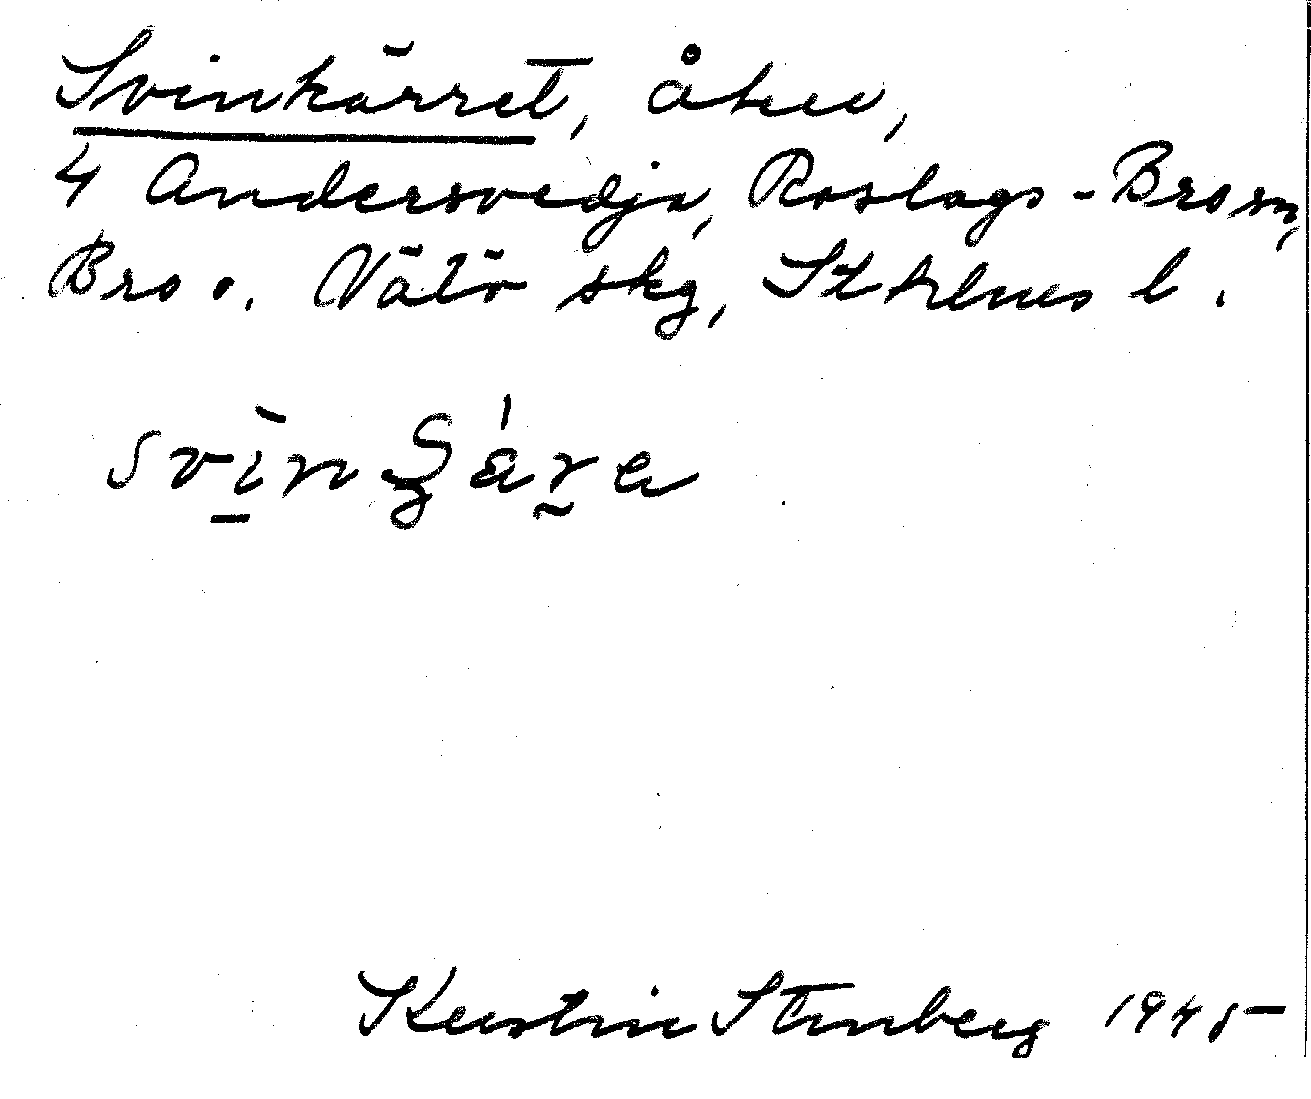 Svinkärret, åker,
4 Andersvedja, Roslags-Bro sn,
Bro o. Vätö skg, Sthlms l.
Kerstin Stenberg 1945